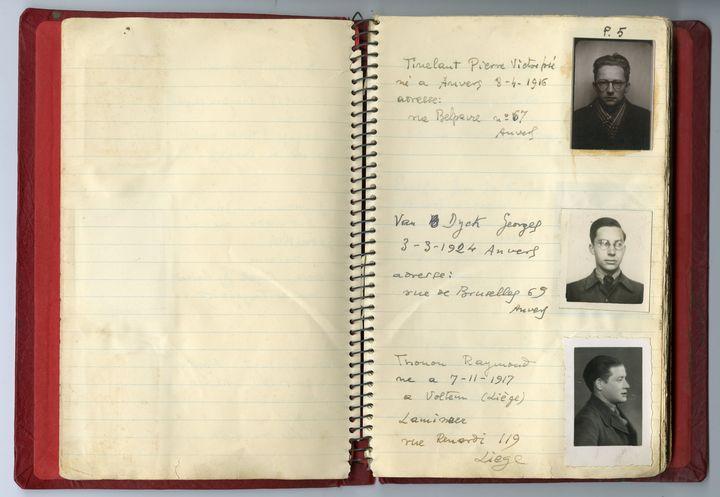 P. 5
Tinelant Pierre Victor
né a Anvers 8-4-1916
adresse:
rue Belpaire nº 67
Anvers
Van Dyck Georges
3-3-1924 Anvers
adresse:
rue de Bruxelles 69
Anvers
Thonon Raymond
né a 7-11-1917
a Vottem (Liège)
Lamineur
rue Renardi 119
Liege